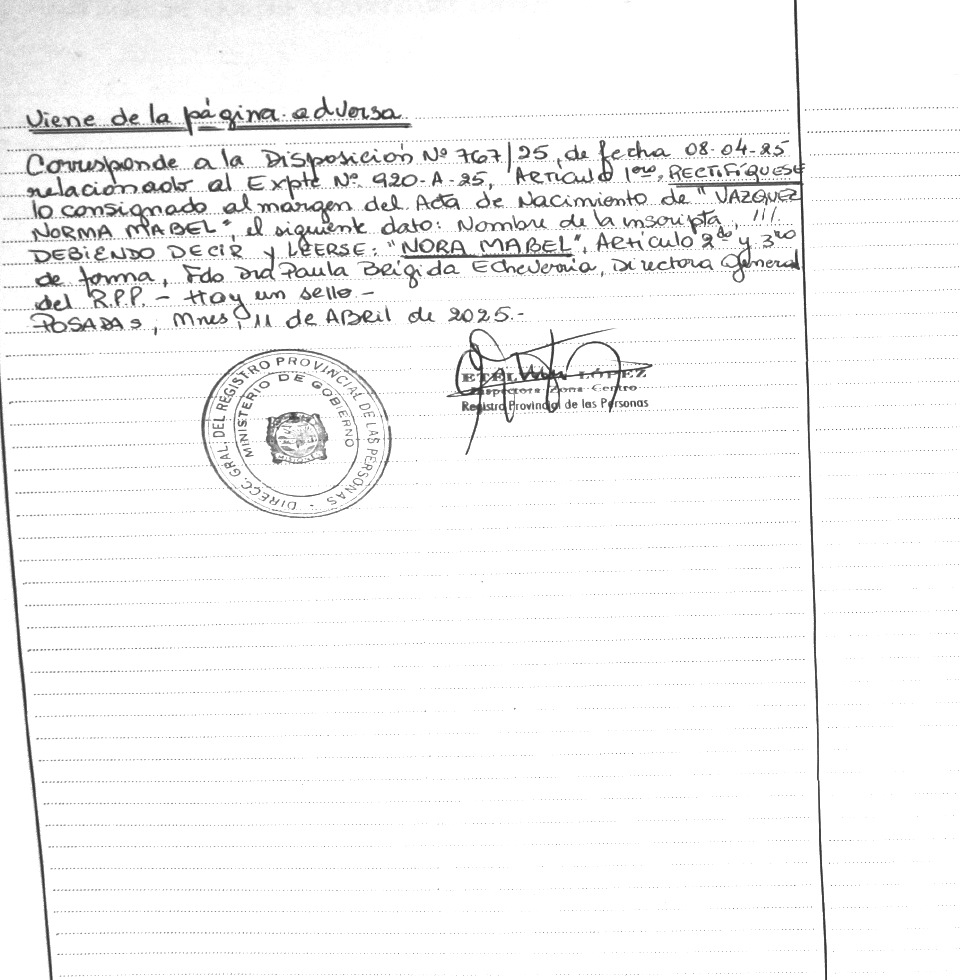 Viene de la página adversa
Corresponde a la Disposición Nº 767/25, de fecha 08-04-25
relacionado al Expte Nº 920-A-25, Artículo 1ero, RECTIFÍQUESE
lo consignado al margen del Acta de Nacimiento de "VAZQUEZ
NORMA MABEL", el siguiente dato: Nombre de la inscripta, ///
DEBIENDO DECIR y LEERSE: "NORA MABEL". Artículo 2do y 3ro
de forma, Fdo Dra Paula Brígida Echeverria, Directora General
del R.P.P. - Hay un sello -
POSADAS, Mnes, 11 de ABril de 2025.-
DIRECC. GRAL. DEL REGISTRO PROVINCIAL DE LAS PERSONAS -
MINISTERIO DE GOBIERNO
LÓPEZ
Inspectora Zona Centro
Registro Provincial de las Personas